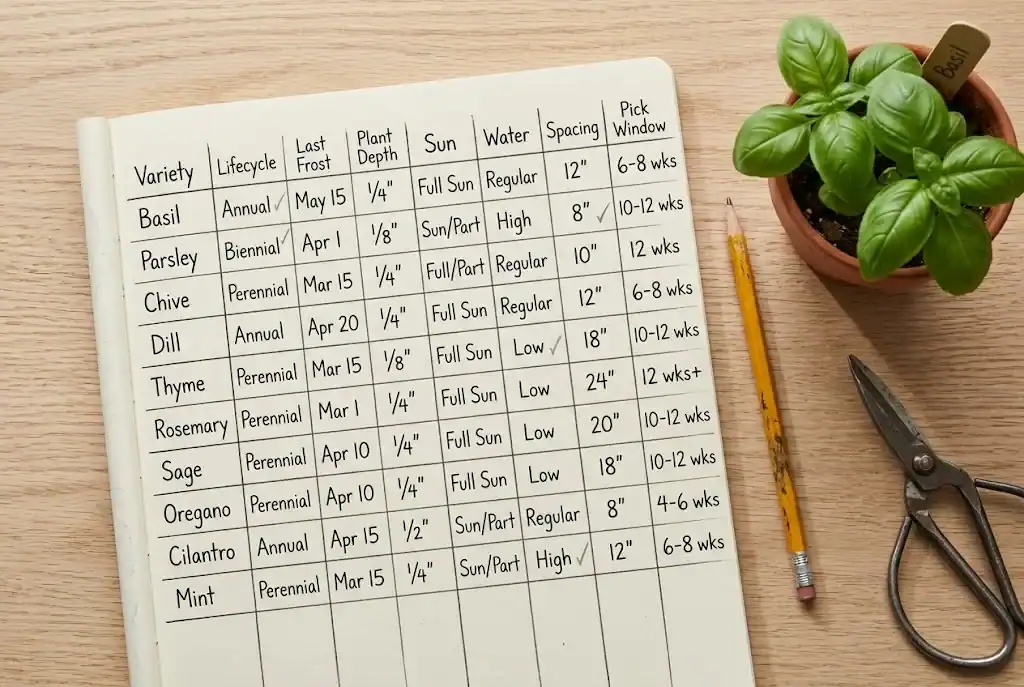 Variety | Lifecycle | Last Frost | Plant Depth | Sun | Water | Spacing | Pick Window
Basil | Annual ✓ | May 15 | 1/4" | Full Sun | Regular | 12" | 6-8 wks
Parsley | Biennial ✓ | Apr 1 | 1/8" | Sun/Part | High | 8" ✓ | 10-12 wks
Chive | Perennial | Mar 15 | 1/4" | Full/Part | Regular | 10" | 12 wks
Dill | Annual | Apr 20 | 1/4" | Full Sun | Regular | 12" | 6-8 wks
Thyme | Perennial | Mar 15 | 1/8" | Full Sun | Low ✓ | 18" | 10-12 wks
Rosemary | Perennial | Mar 1 | 1/4" | Full Sun | Low | 24" | 12 wks+
Sage | Perennial | Apr 10 | 1/4" | Full Sun | Low | 20" | 10-12 wks
Oregano | Perennial | Apr 10 | 1/4" | Full Sun | Low | 18" | 10-12 wks
Cilantro | Annual | Apr 15 | 1/2" | Sun/Part | Regular | 8" | 4-6 wks
Mint | Perennial | Mar 15 | 1/4" | Sun/Part | High ✓ | 12" | 6-8 wks
Basil